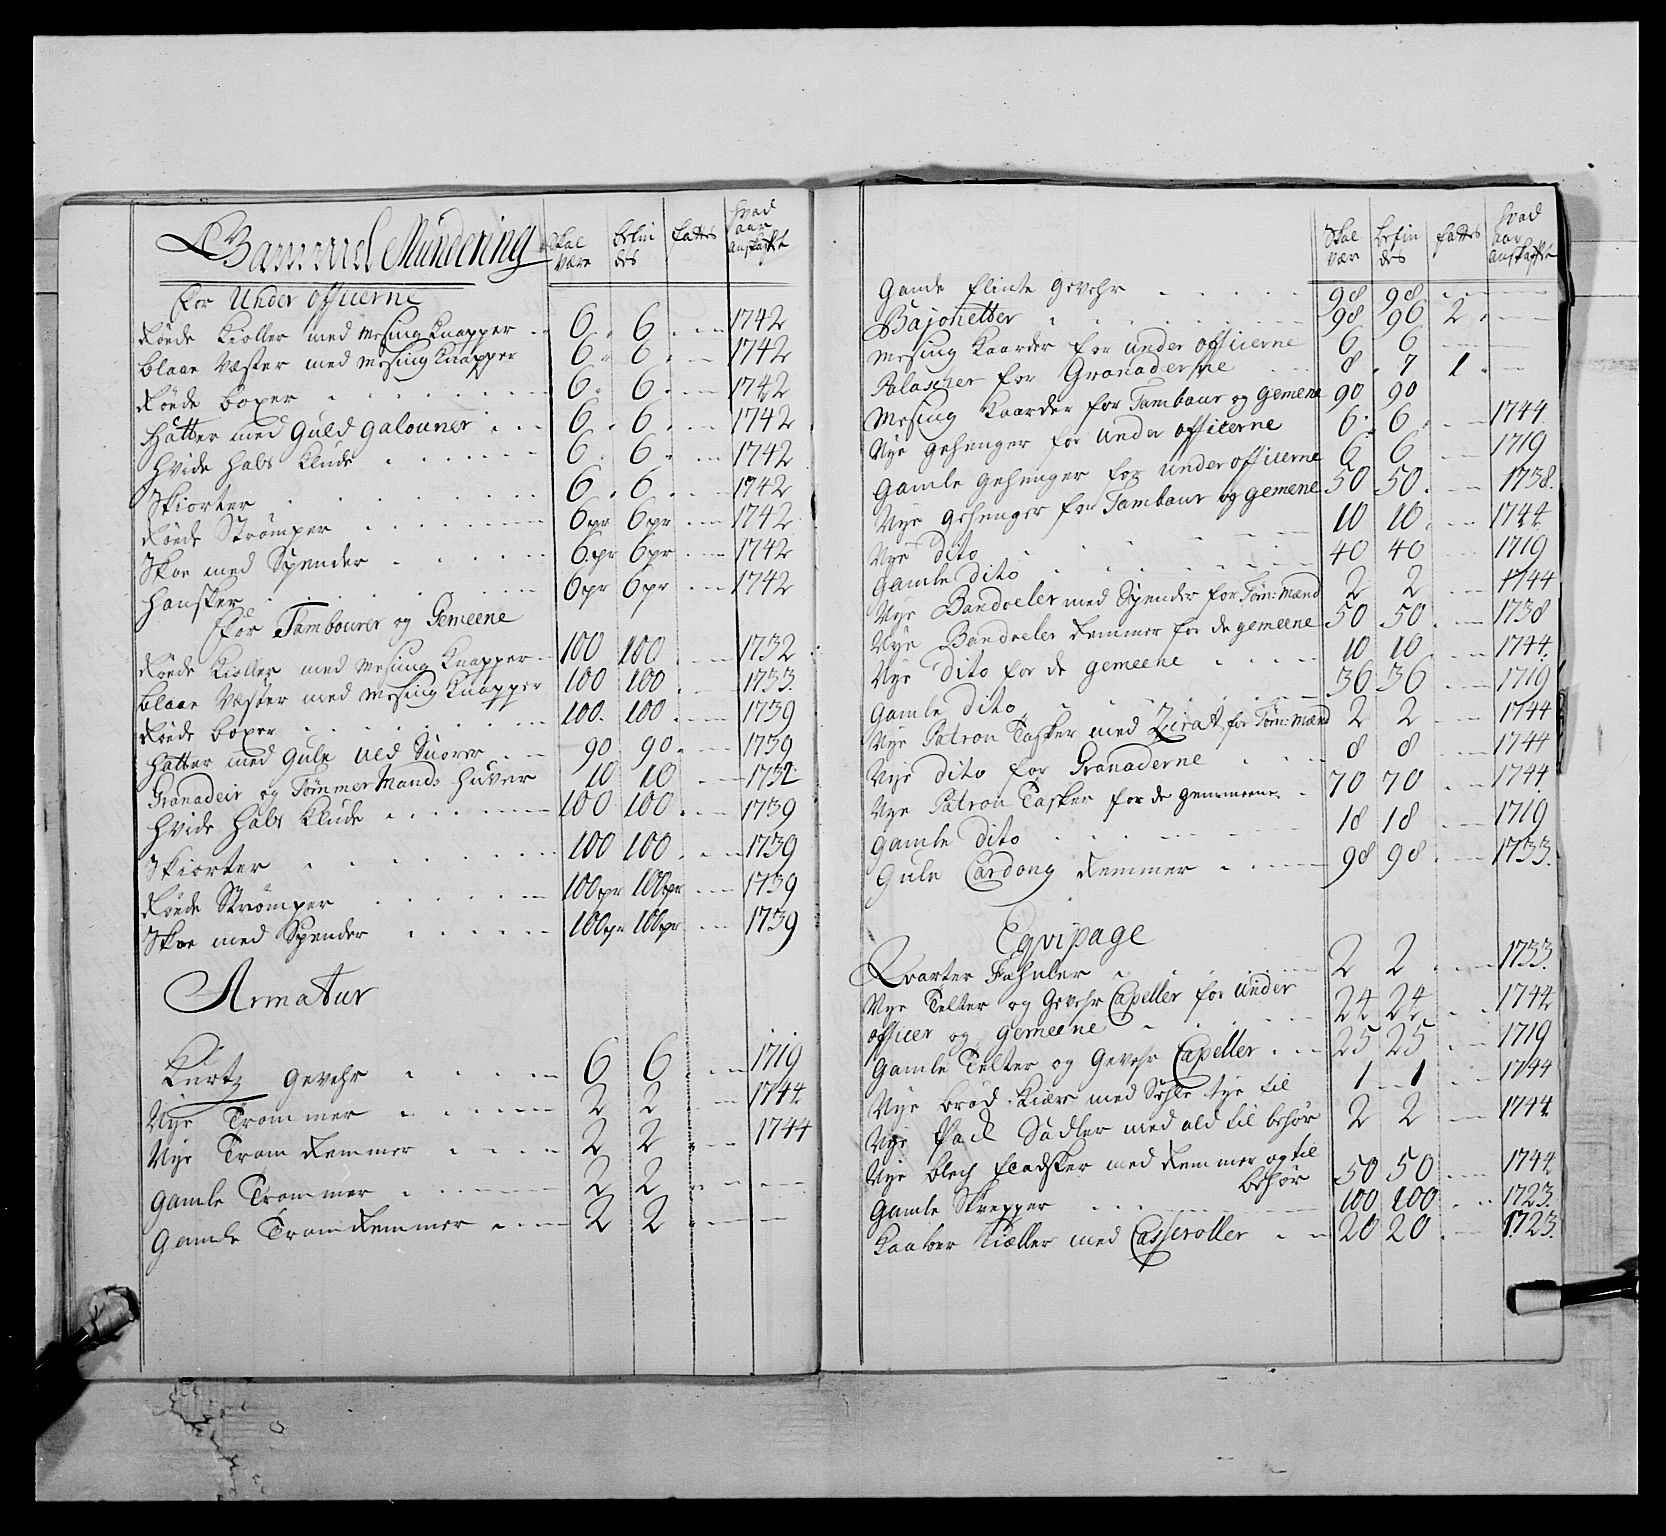 Gammel Mundering Skal være befin des fattes hvad aar anskaffet
for Under officerne
Røede Kioller med Mesing Knapper 6 6 1742
blaae Vester med Mesing Knapper 6 6 1742
Røede boxer 6 6 1742
Hatter med Guld galouner 6 6 1742
Hvide Hals Klude 6 6 1742
Skiorter 6 6 1742
Røede Strømper 6pr 6pr 1742
Skoe med Spender 6pr 6pr 1742
Hansker 6pr 6pr 1742
for Tambourer og Gemeene
Røede Kioller med Mesing Knapper 100 100 1732
blaae Vester med Mesing Knapper 100 100 1733
Røede boxer 100 100 1739
Hatter med Gule Uld Snorer 90 90 1739
Granadeir og Tømmer Mands Huver 10 10 1732
Hvide Hals Klude 100 100 1739
Skiorter 100 100 1739
Røede Strømper 100pr 100pr 1739
Skoe med Spender 100pr 100pr 1739
Armatur
Kurtz gevehr 6 6 1719
Nye Trommer 2 2 1744
Nye Trom Remmer 2 2 1744
Gamle Trommer 2 2
Gamle Trom Remmer 2 2
Skal være befin des fattes hvad aar anskaffet
Gamle flinte gevehr 98 98
Bajonetter 98 96 2
Mesing Kaarder for under officerne 6 6
Palascher for Granaderne 8 7 1
Mesing Kaarder for Tambour og gemene 90 90
Nye gehenger for under officerne 6 6 1744
Gamle gehenger for under officerne 6 6 1719
Nye gehenger for Tambour og gemene 50 50 1738
Nye dito 10 10 1744
Gamle dito 40 40 1719
Nye Bandoeler med Spender for Tøm: Mænd 2 2 1744
Nye Bandoeler Remmer for de gemeene 50 50 1738
Nye dito for de gemeene 10 10 1744
Gamle dito 36 36 1719
Nye Patron Tasker med Zirat for Tøm: Mænd 2 2 1744
Nye dito for Granaderne 8 8 1744
Nye Patron Tasker for de gemmeene 70 70 1744
Gamle dito 18 18 1719
Gule Cardong Remmer 98 98 1733
Eqvipage
Qvarter Fahnler 2 2 1733
Nye Telter og Gevehr Capeller for under
officer og gemeene 24 24 1744
Gamle Telter og Gevehr Capeller 25 25 1719
Nye brød Kiære med Sehle tye til 1 1 1744
Nye Pack Sadler med ald til behør 2 2 1744
Nye blech fladsker med Remmer og til
behør 50 50 1744
Gamle Skrepper 100 100 1723
Kaaber Kiæller med Casseroller 20 20 1723